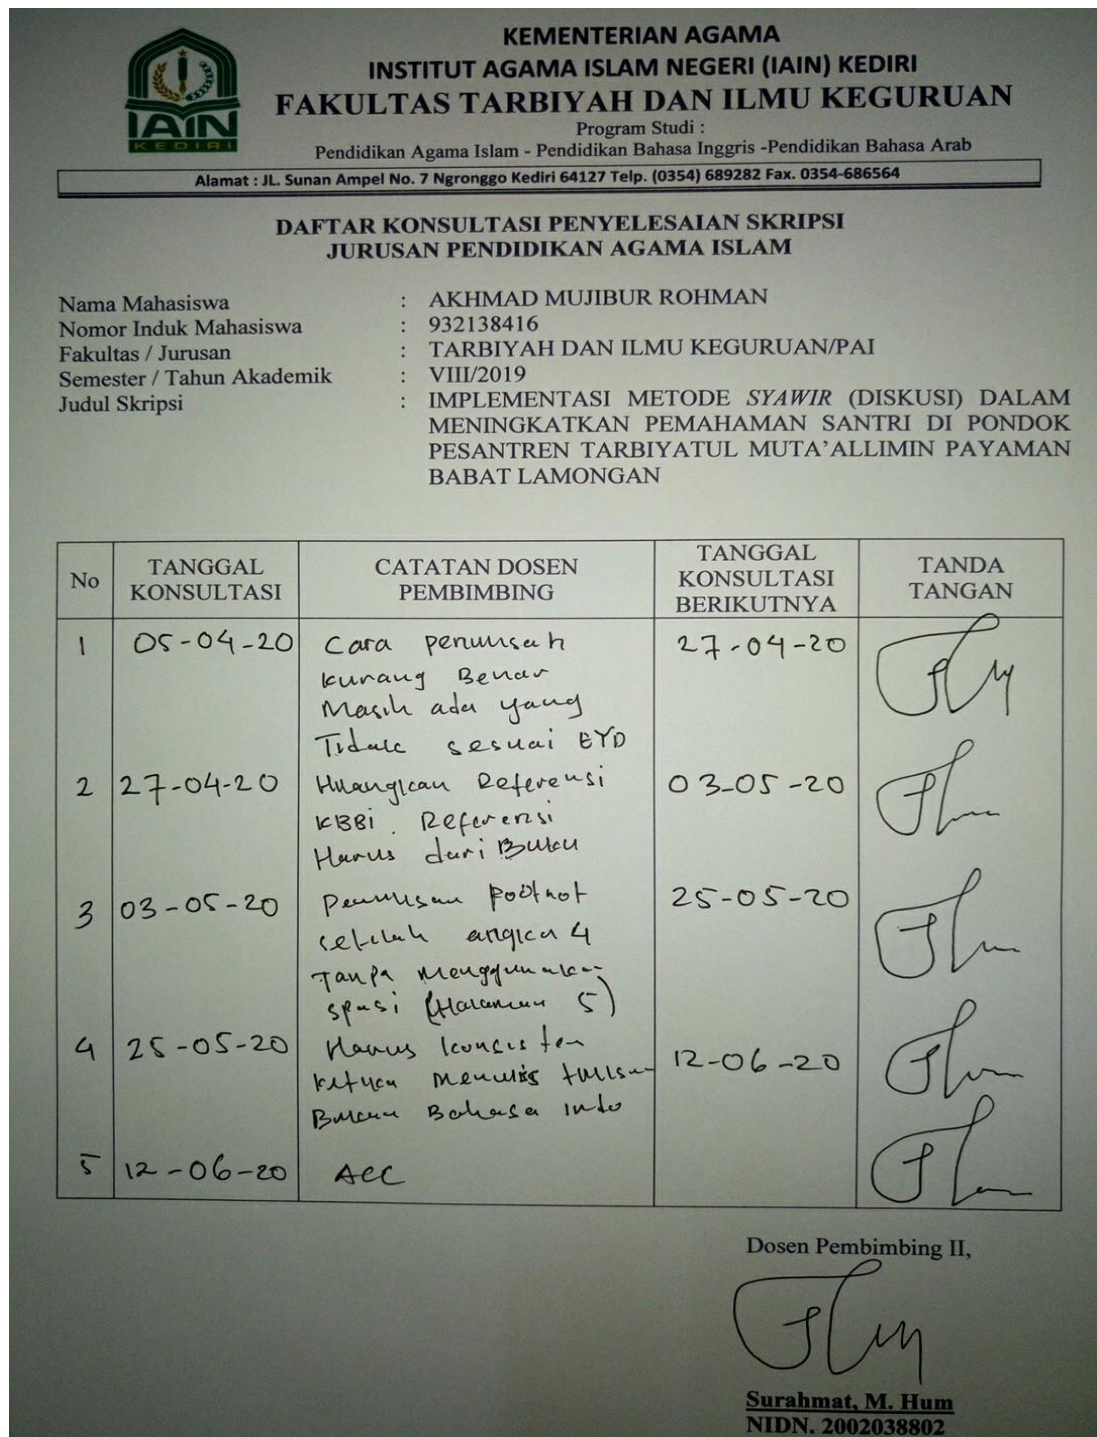 KEMENTERIAN AGAMA
INSTITUT AGAMA ISLAM NEGERI (IAIN) KEDIRI
FAKULTAS TARBIYAH DAN ILMU KEGURUAN
Program Studi :
Pendidikan Agama Islam - Pendidikan Bahasa Inggris -Pendidikan Bahasa Arab
IAIN
KEDIRI
Alamat : JL. Sunan Ampel No. 7 Ngronggo Kediri 64127 Telp. (0354) 689282 Fax. 0354-686564
DAFTAR KONSULTASI PENYELESAIAN SKRIPSI
JURUSAN PENDIDIKAN AGAMA ISLAM
Nama Mahasiswa : AKHMAD MUJIBUR ROHMAN
Nomor Induk Mahasiswa : 932138416
Fakultas / Jurusan : TARBIYAH DAN ILMU KEGURUAN/PAI
Semester / Tahun Akademik : VIII/2019
Judul Skripsi : IMPLEMENTASI METODE SYAWIR (DISKUSI) DALAM
MENINGKATKAN PEMAHAMAN SANTRI DI PONDOK
PESANTREN TARBIYATUL MUTA'ALLIMIN PAYAMAN
BABAT LAMONGAN
No TANGGAL KONSULTASI CATATAN DOSEN PEMBIMBING TANGGAL KONSULTASI BERIKUTNYA TANDA TANGAN
1 05-04-20 Cara penulisan 27-04-20
kurang Benar
Masih ada yang
Tidak sesuai EYD
2 27-04-20 Hilangkan Referensi 03-05-20
KBBI. Referensi
Harus dari Buku
3 03-05-20 Penulisan footnot 25-05-20
setelah angka 4
Tanpa Menggunakan
spasi (Halaman 5)
4 25-05-20 Harus konsisten 12-06-20
ketika Menulis tulisan
Bukan Bahasa Indo
5 12-06-20 ACC
Dosen Pembimbing II,
Surahmat, M. Hum
NIDN. 2002038802